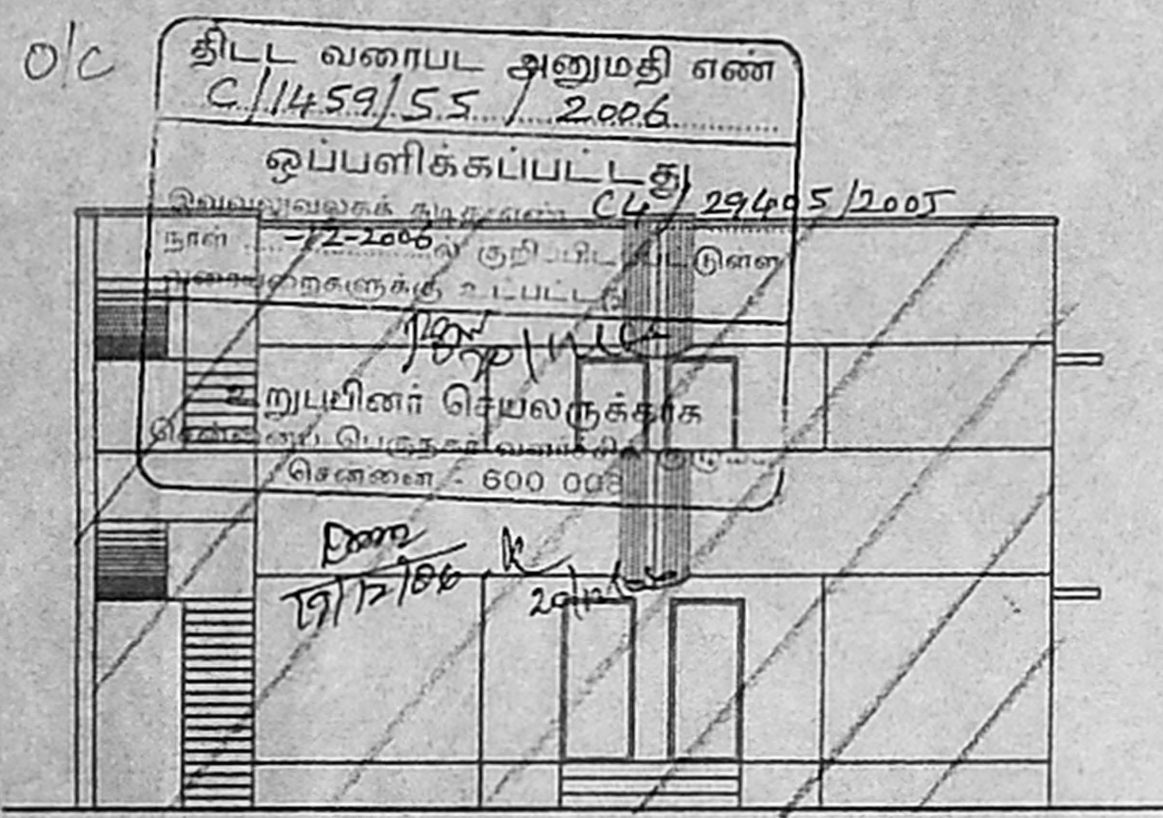 O/C
திட்ட வரைபட அனுமதி எண்
C/1459/55/2006
ஒப்பளிக்கப்பட்டது
இவ்வலுவலகக் கடித எண் C4/29405/2005
நாள் -12-2006ல் குறிப்பிடப்பட்டுள்ள
வரைமுறைகளுக்கு உட்பட்டது
உறுபபினர் செயலருக்காக
சென்னைப் பெருநகர் வளர்ச்சிக் குழுமம்
சென்னை - 600 008
19/12/06
20/12/06